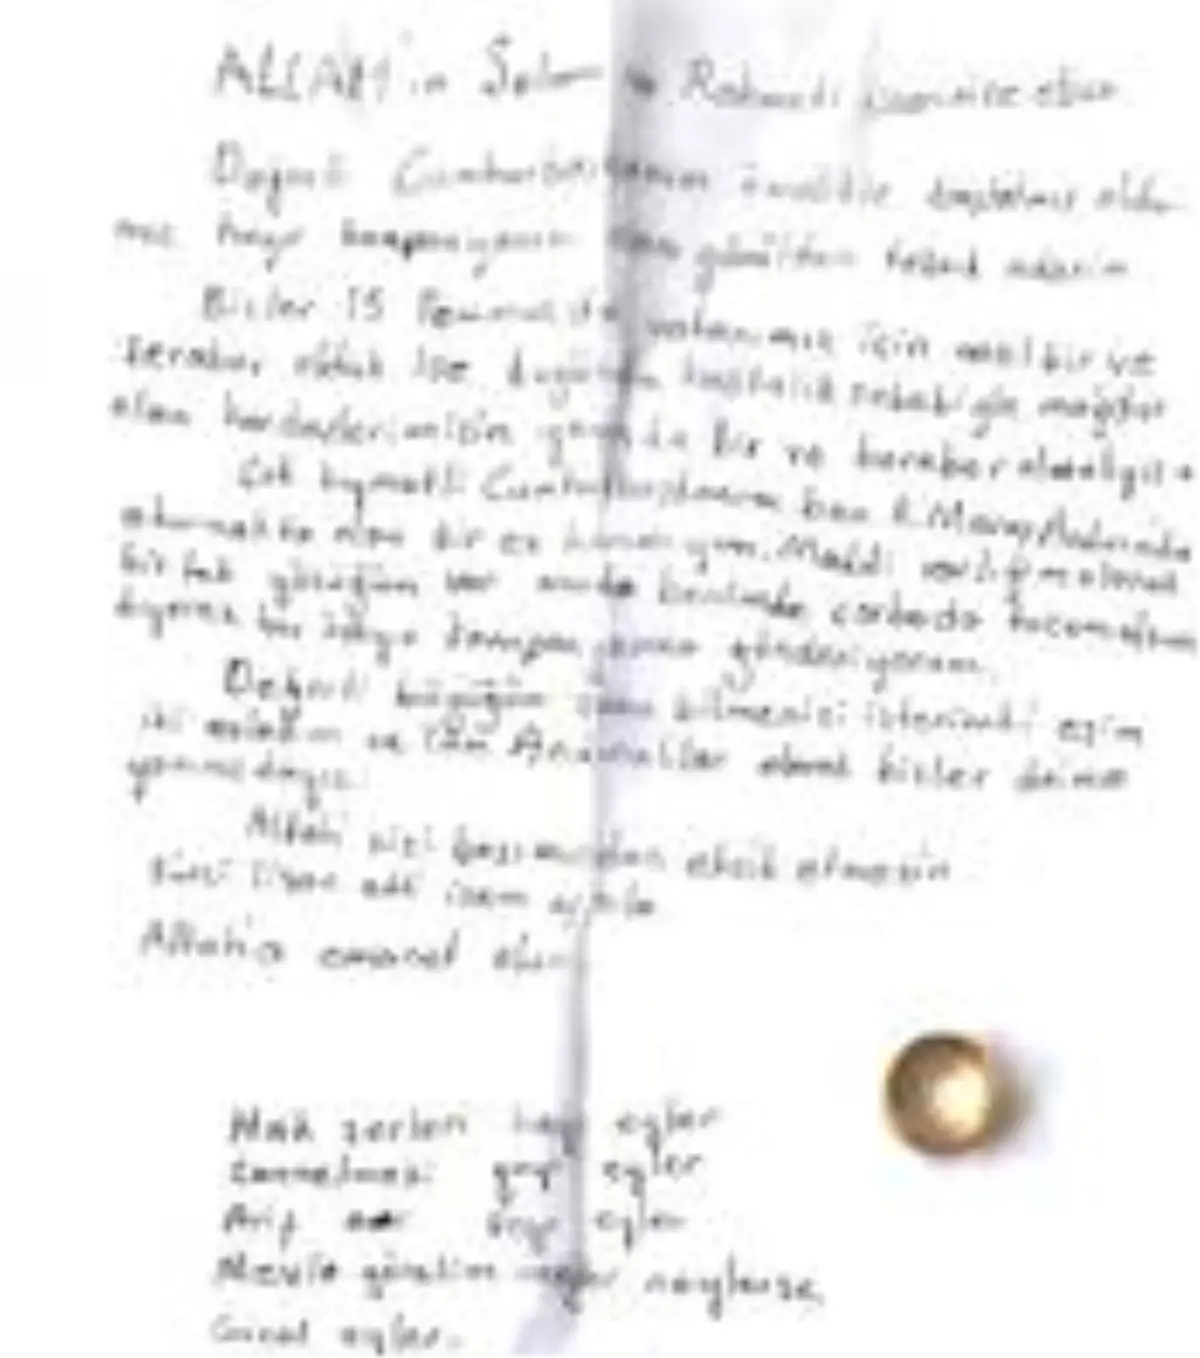 ALLAH'ın Selam ve Rahmeti üzerinize olsun
Değerli Cumhurbaşkanım öncelikle başlatmış oldu
hayır kampanyanızı gönülden tebrik ederim
Bizler 15 Temmuz'da vatanımız için nasıl bir ve
beraber olduk ise bugünde hastalık sebebiyle mağdur
olan kardeşlerimizin yanında bir ve beraber olmalıyız
Çok kıymetli Cumhurbaşkanım ben K.Maraş
oturmakta olan bir ev hanımıyım. Maddi varlığım olarak
bir tek yüzüğüm var bende benimde çorbada tuzum olsun
diyerek bu kampanyasına gönderiyorum.
Değerli büyüğüm şunu bilmenizi isterimki eşim
iki evladım ve tüm olarak bizler daima
yanınızdayız.
Allah sizi başımızdan eksik etmesin
Sürci lisan etti isem affola
Allah'a emanet olun
Hak şerleri hayr eyler
Zannetmeki gayr eyler
Arif anı seyr eyler
Mevla görelim neyler neylerse
Güzel eyler.